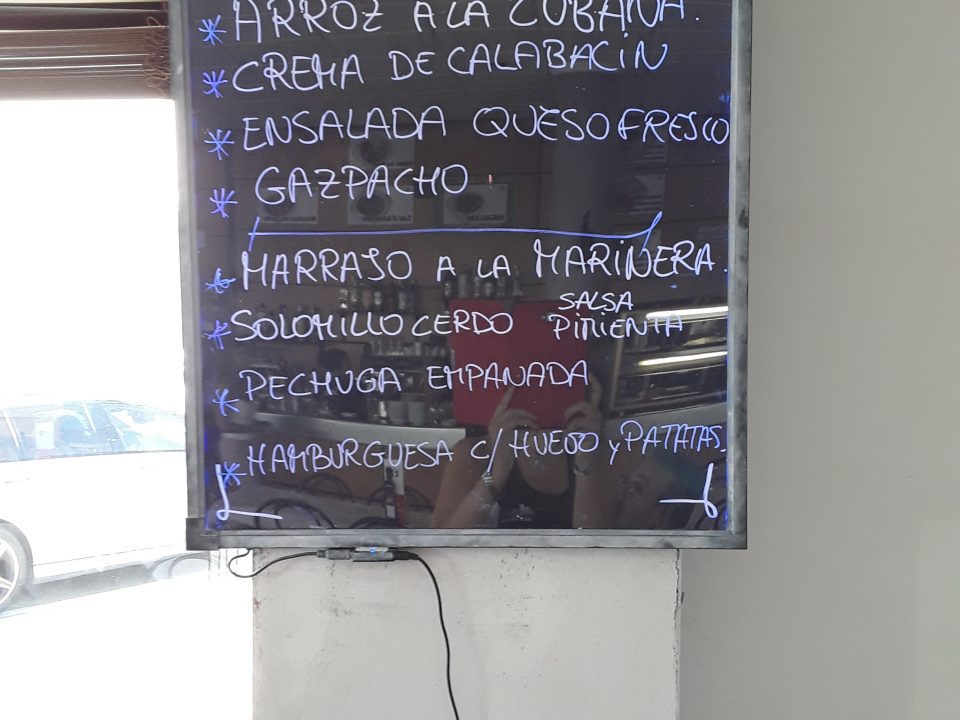 * ARROZ A LA CUBANA.
* CREMA DE CALABACIN
* ENSALADA QUESO FRESCO
* GAZPACHO
* MARRAJO A LA MARINERA.
* SOLOMILLO CERDO SALSA PIMIENTA
* PECHUGA EMPANADA
* HAMBURGUESA C/ HUEVO y PATATAS.